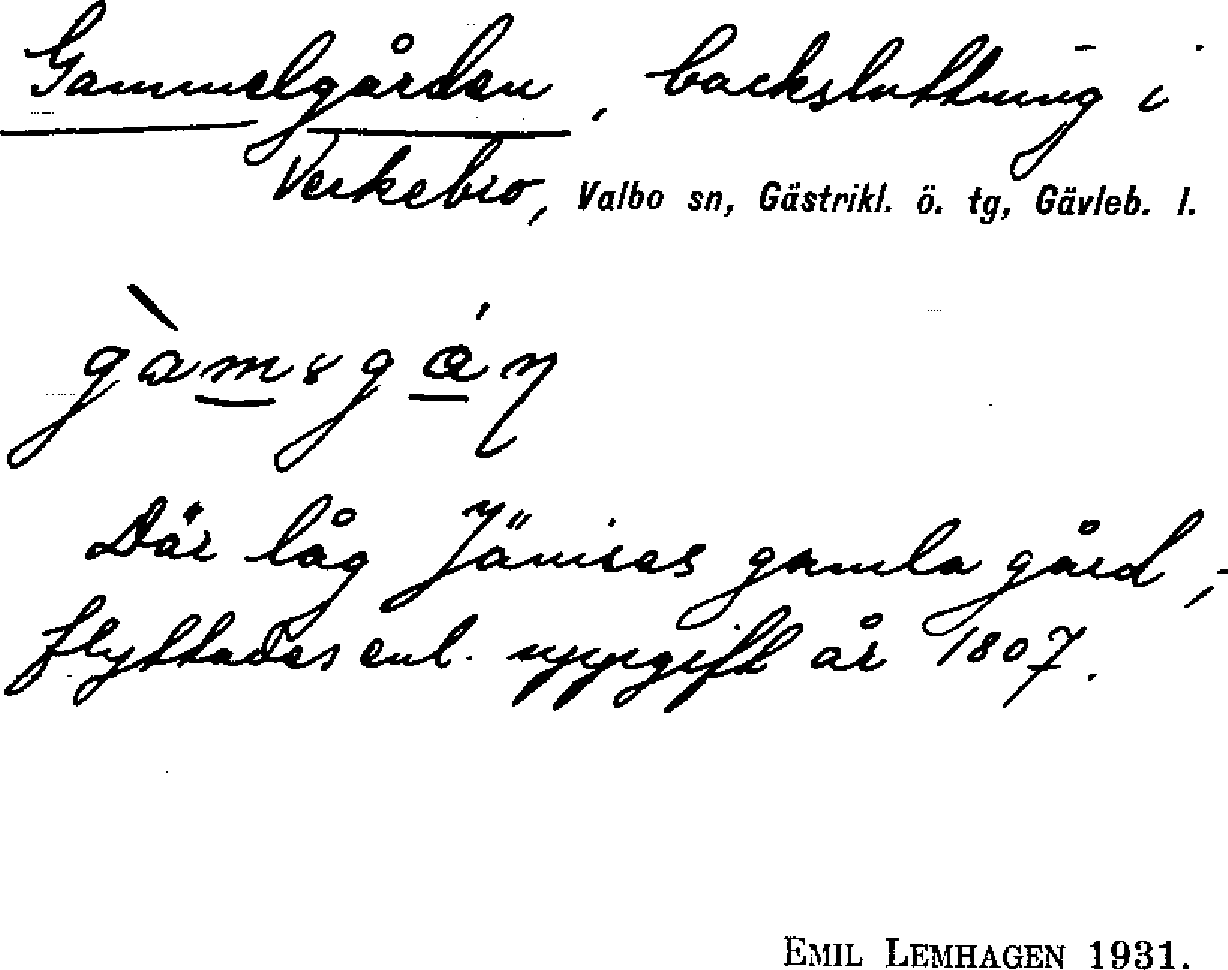 Gammelgården, backsluttning i
Verkebro, Valbo sn, Gästrikl. ö. tg, Gävleb. l.
Där låg Jämsas gamla gård,
flyttades enl. uppgift år 1807.
EMIL LEMHAGEN 1931.